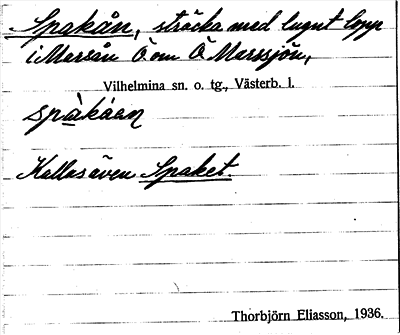 Spakån, sträcka med lugnt lopp
i Marsån Ö om Ö Marssjön,
Vilhelmina sn. o. tg., Västerb. l.
spàkáan
Kallas även Spaket.
Thorbjörn Eliasson, 1936.